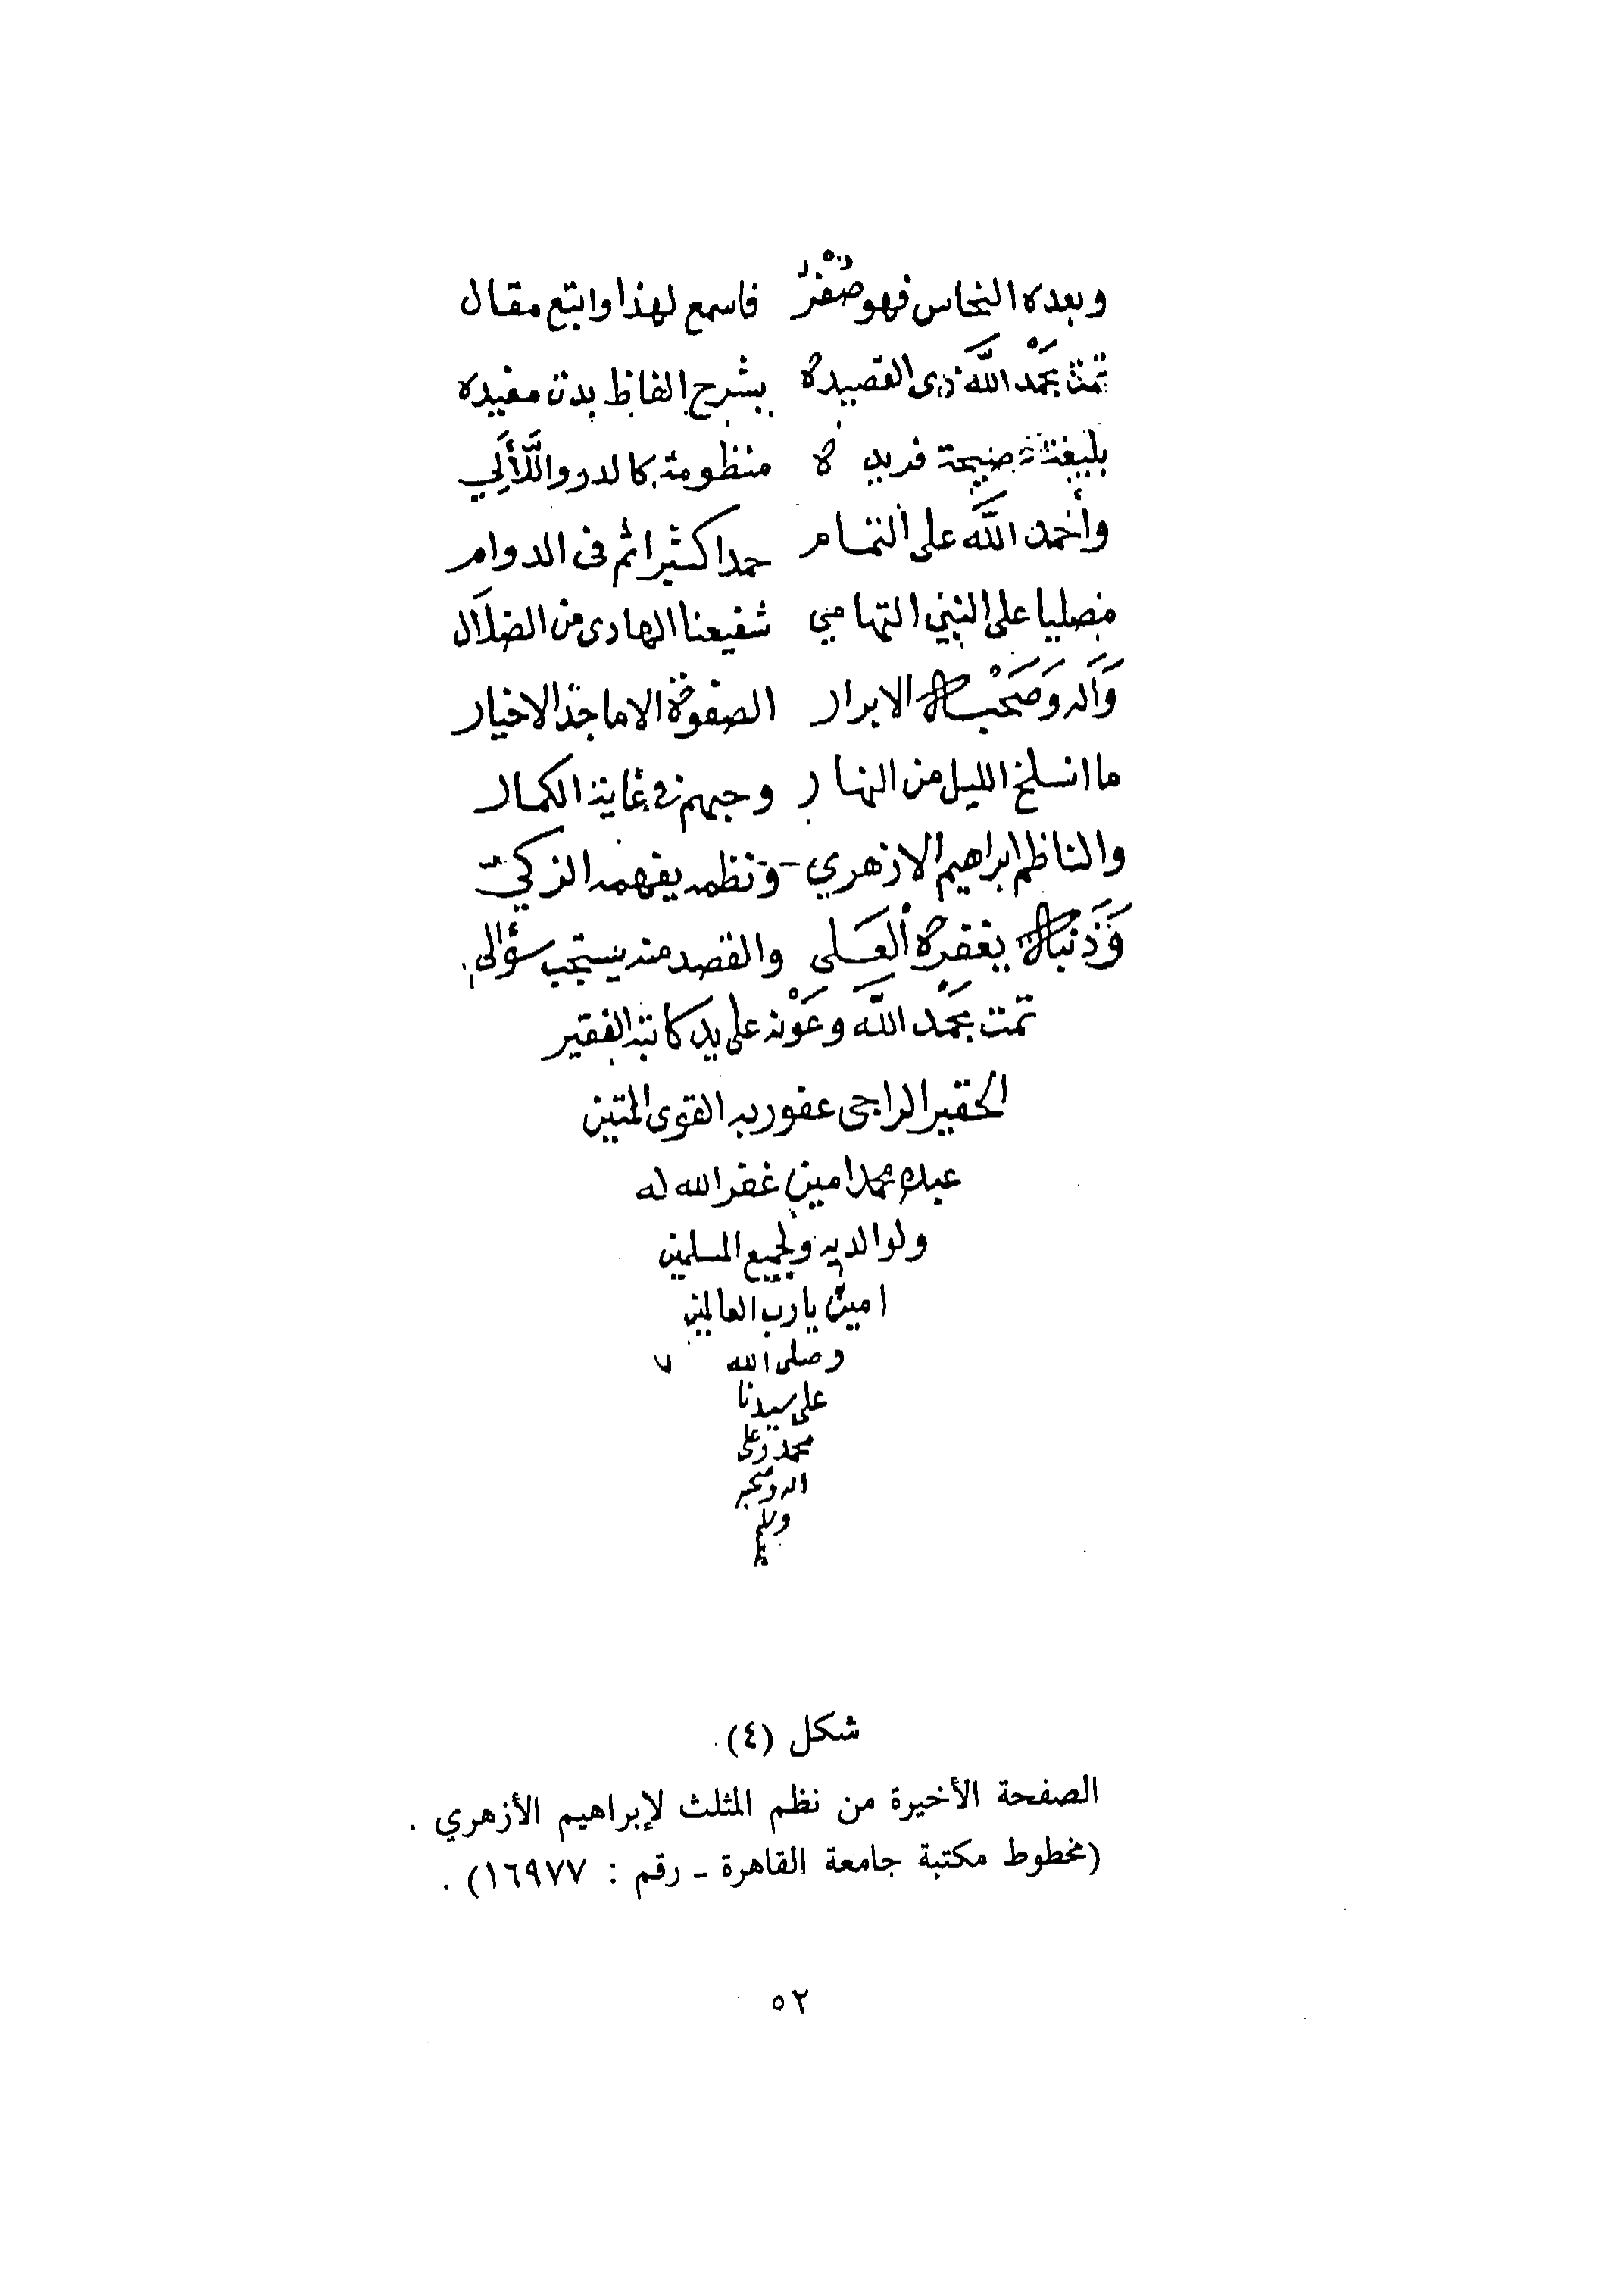 وبعده النحاس فهو صُفْرٌ فاسمع لهذا واتبع مقال
تمت بحَمْد اللَّه ذى القصيده بشرح الفاظ بدت مفيده
بليغة فريده منظومة كالدر واللَّألِي
وأحمد اللَّه على التمام حمدا كثيرا ثم فى الدوام
مصليا على النبي التهامي شفيعنا الهادى من الضلال
وَاله وَصَحْبه الابرار الصفوة الاماجد الاخيار
ما انسلخ الليل من النهار وحبهم فى غاية الكمال
والناظم ابراهيم الازهري ونظمه يفهمه الزكي
وَذَنبه يغفره العَلى والقصد منه يستجب سؤالى
تمت بحَمْد اللَّه وعَوْنه على يد كاتبه الفقير
الحقير الراجى عفو ربه القوى المتين
عبده محمد امين غفر الله له
ولوالديه ولجميع المسلمين
امين يا رب العالمين
وصلى الله ٧
على سيدنا
محمد وعلى
اله وصحبه
وسلم
شكل (٤)
الصفحة الأخيرة من نظم المثلث لإبراهيم الأزهري .
(مخطوط مكتبة جامعة القاهرة ـ رقم : ١٦٩٧٧) .
٥٢